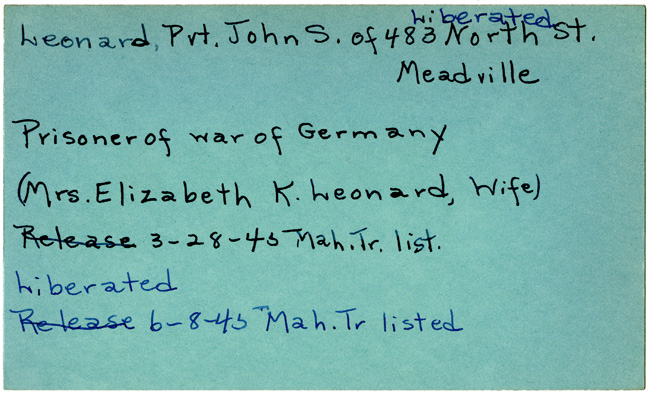 Liberated
Leonard, Pvt. John S. of 483 North St.
Meadville
Prisoner of war of Germany
(Mrs. Elizabeth K. Leonard, Wife)
Release 3-28-45 Mah. Tr. list.
Liberated
Release 6-8-45 Mah. Tr listed